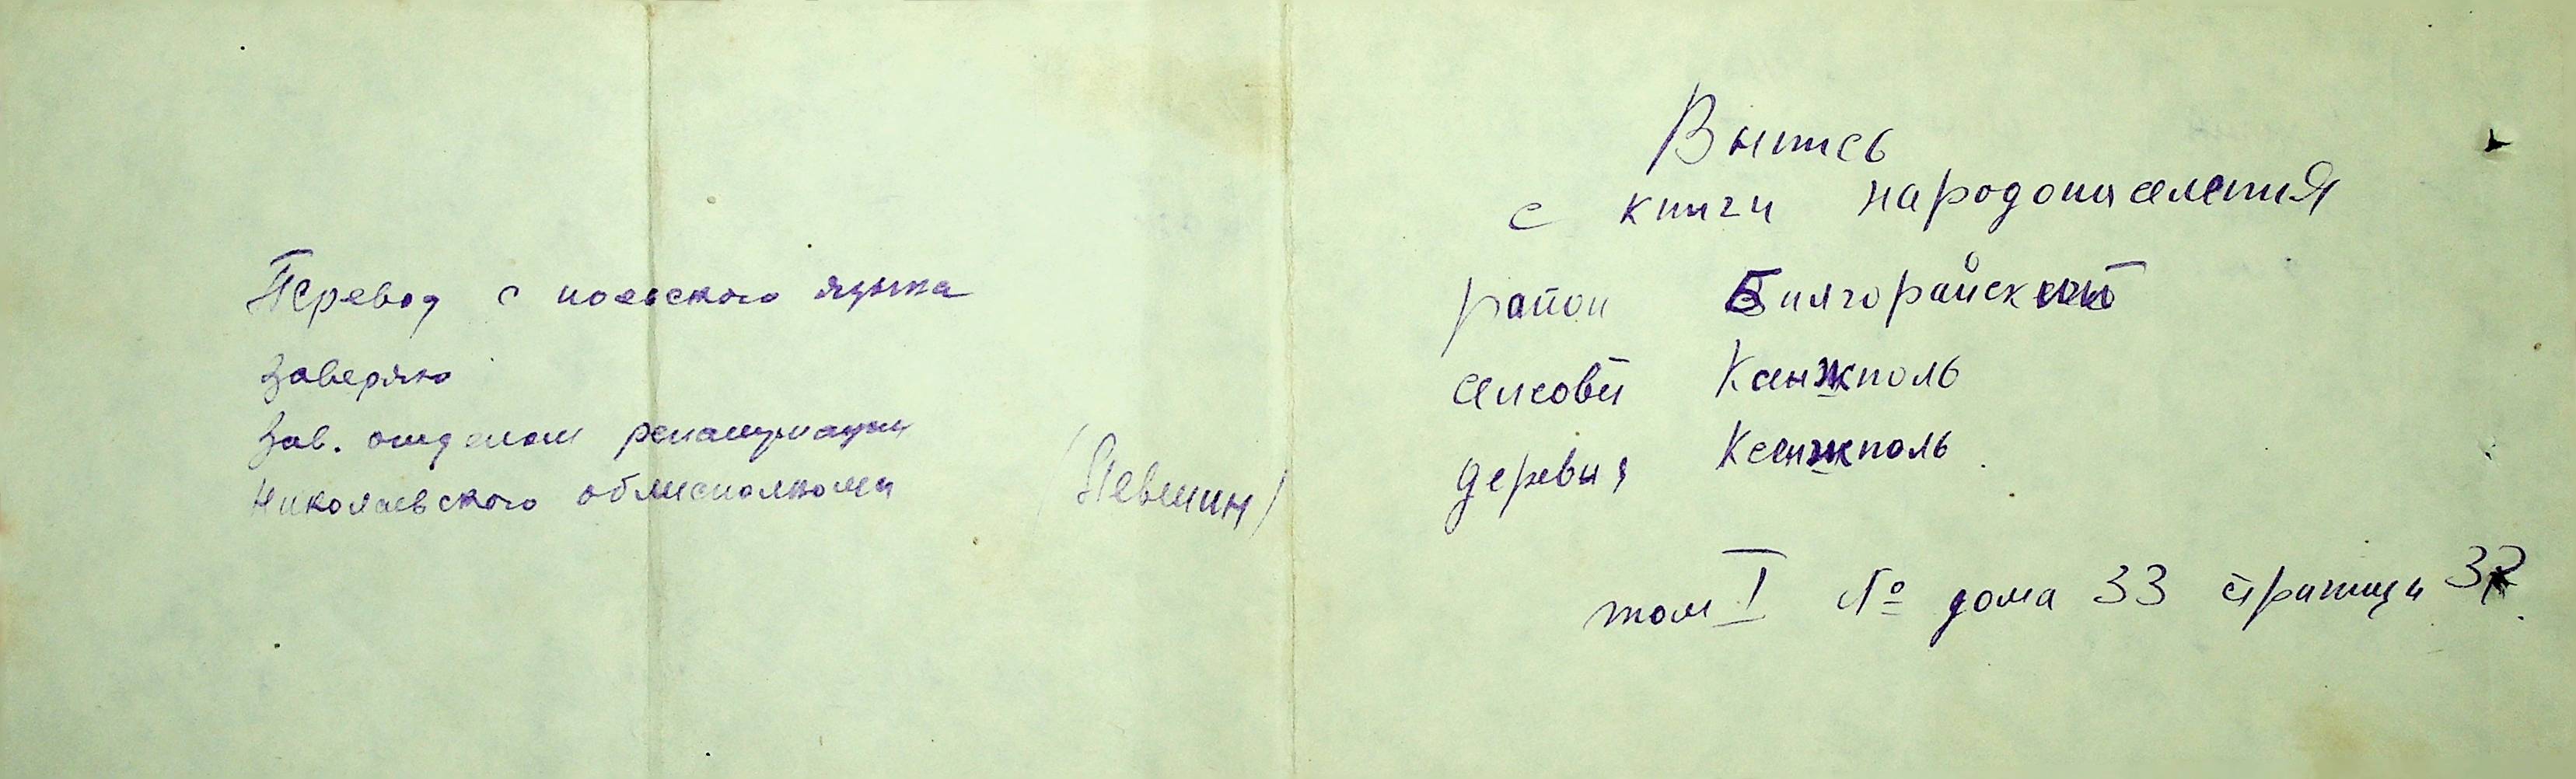 Перевод с польского языка
заверяю
Зав. отделом репатриации
Николаевского облисполкома (Левшин)
Выпись
с книги народонаселения
район Билгорайский
сельсовет
деревня
том I № дома 33 страница